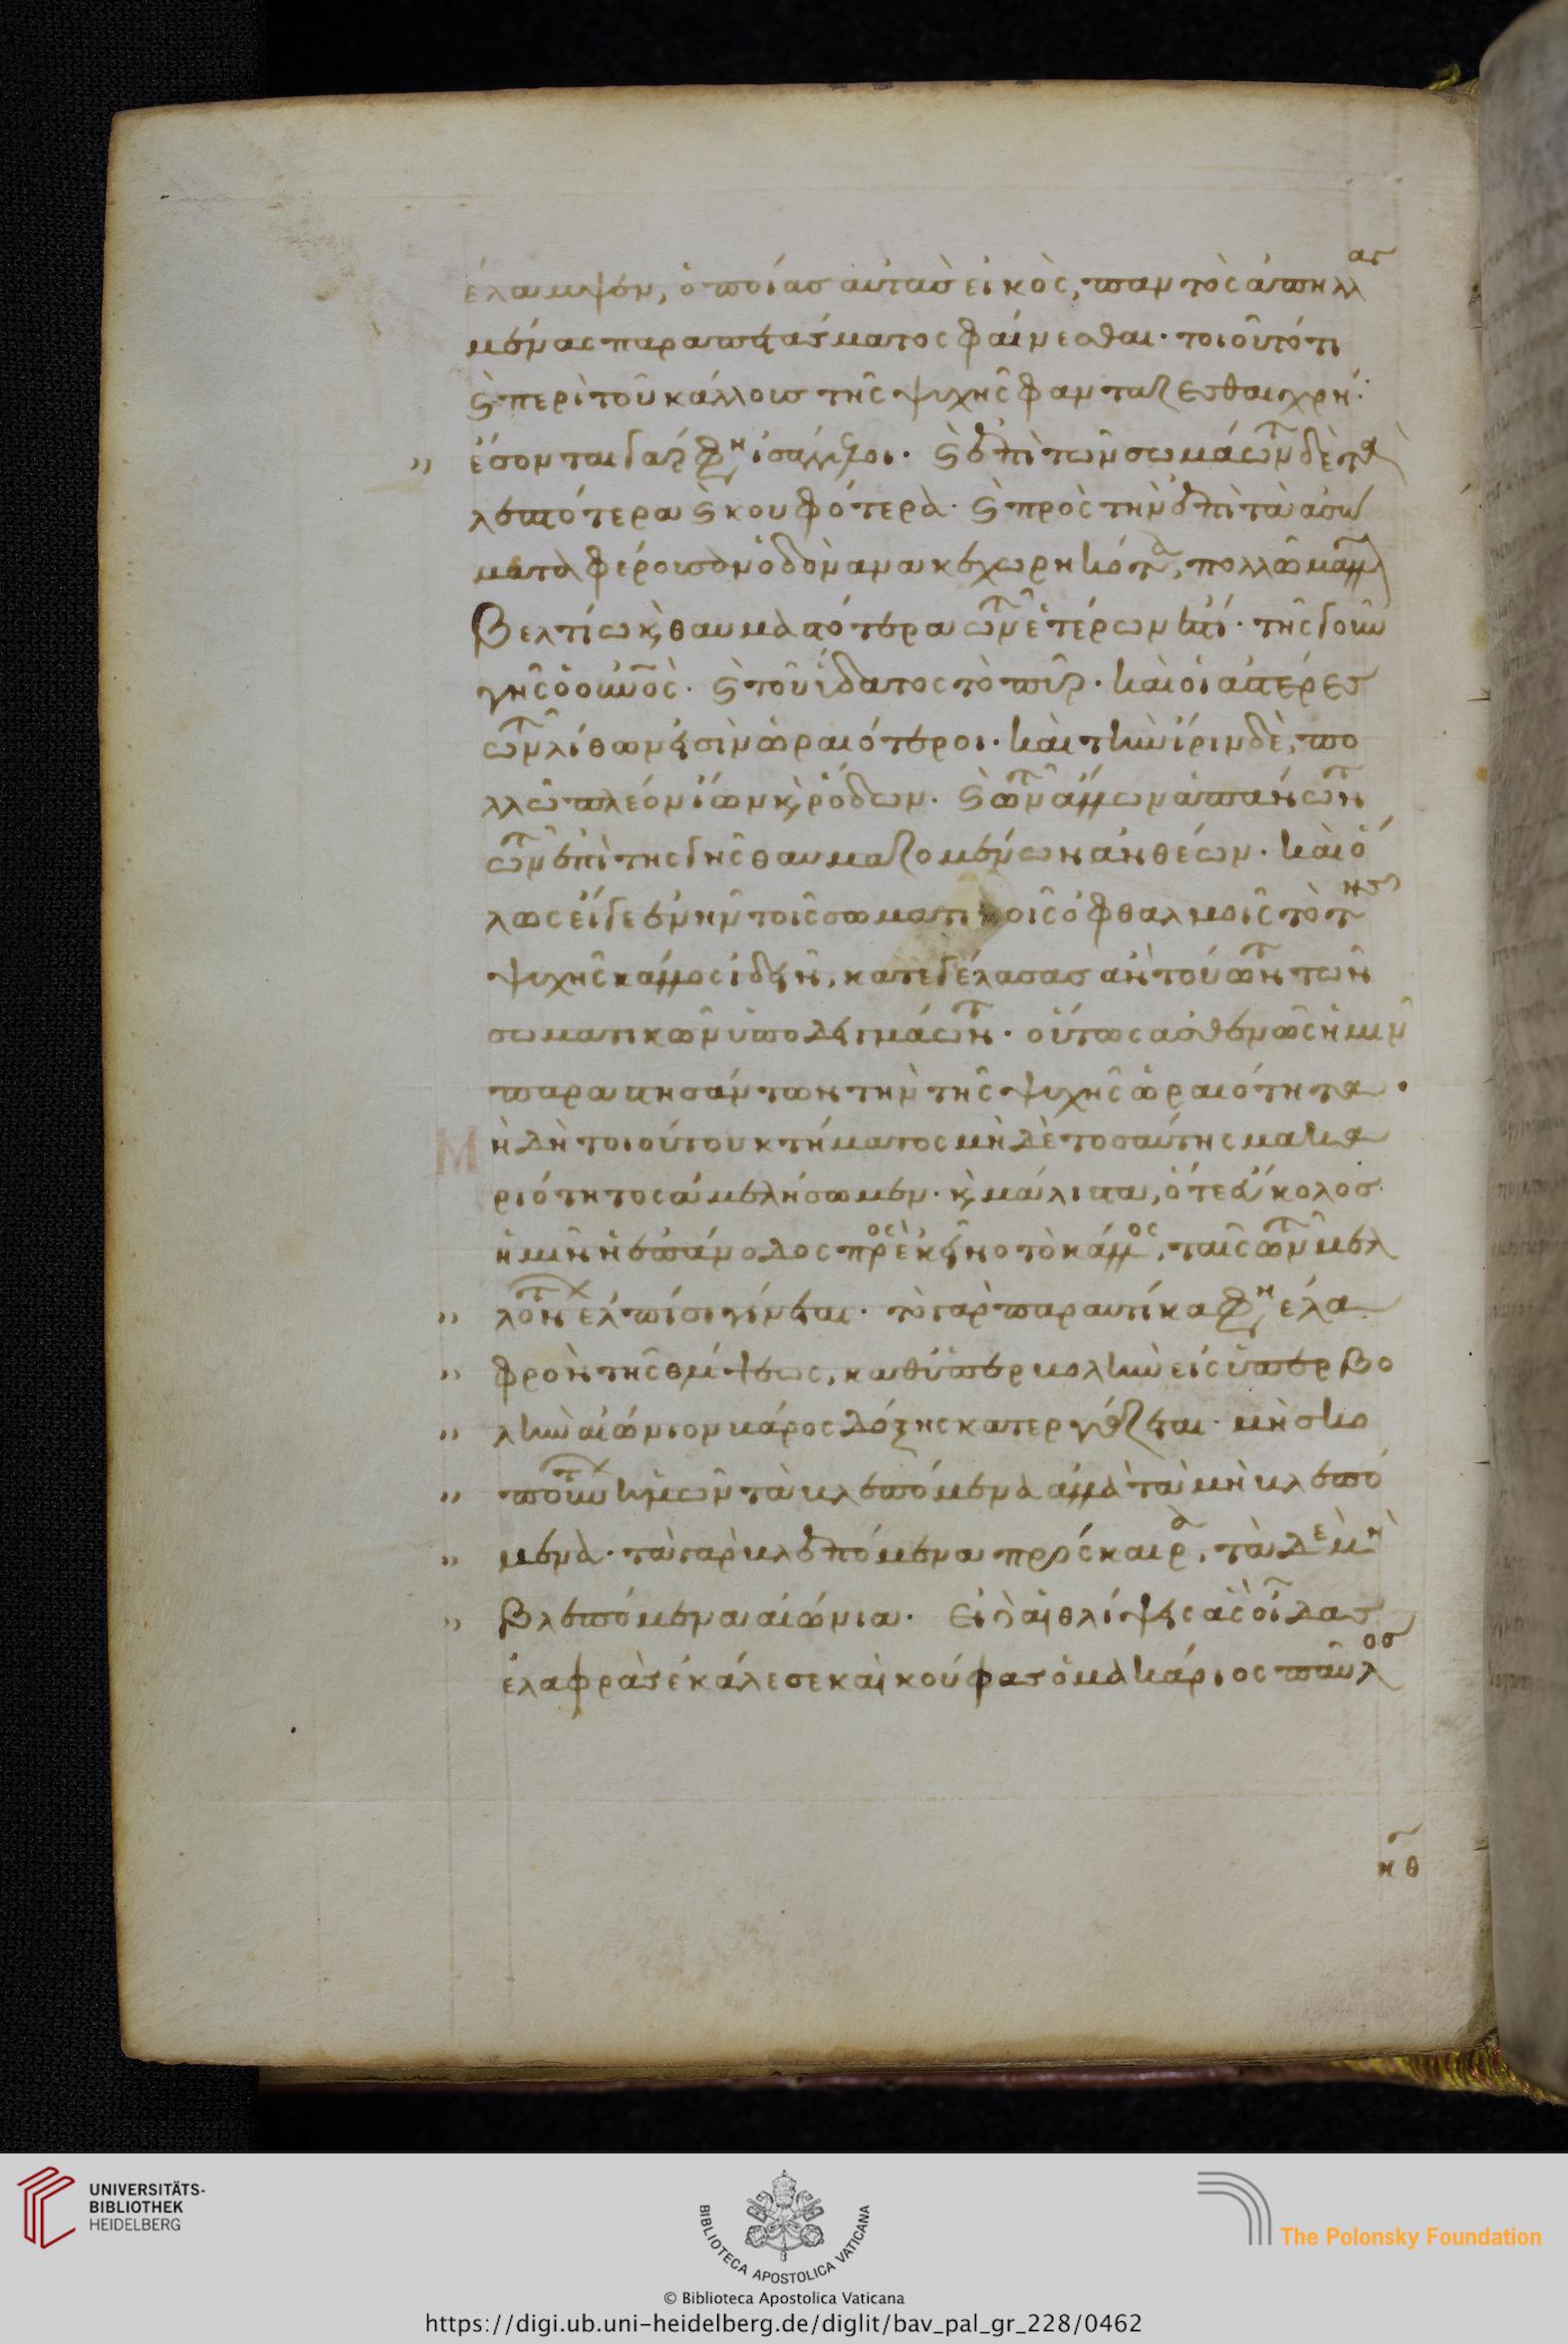 έλαμψεν, ὁποίας αὐτὰς εἰκὸς, παντὸς ἀπηλλας
μένας παραπετάσματος φαίνεσθαι· τοιοῦτό τι
καὶ περὶ τοῦ κάλλους τῆς ψυχῆς φανταζεσθαι χρή·
ἔσονται γάρ φη ἰσάγγελοι· καὶ ἐπὶ τῶν σωμάτων δὲ τὰ
λεπτότερα καὶ κουφότερα· καὶ πρὸς τὴν ἐπὶ τὰ ἀσώ
ματα φέρουσαν ὁδὸν ἀνακεχωρηκότα, πολλῶ μᾶλλ
βελτίω κ θαυμαστότερα τῶν ἑτέρων ἐστί· τῆς γοῦν
γῆς ὁ οὐνος· καὶ τοῦ ὕδατος τὸ πῦρ· καὶ οἱ ἀστέρες
τῶν λίθων εἰσὶν ὡραιότεροι· καὶ τὴν ἴριν δὲ, πο
λλῶ πλέον ἴων κ ῥόδων· καὶ τῶν ἄλλων ἁπάντων
τῶν ἐπὶ τῆς γῆς θαυμαζομένων ἀνθέων· καὶ ὅ
λως εἴγε ἐνῆν τοῖς σωματικοῖς ὀφθαλμοῖς τὸ τῆς
ψυχῆς κάλλος ἰδεῖν, κατεγέλασας ἂν τούτων τῶν
σωματικῶν ὑποδειγμάτων· οὕτως ἀσθενῶς ἡμῖν
παραστησάντων τὴν τῆς ψυχῆς ὡραιότητα·
Μὴ δὴ τοιούτου κτήματος μὴ δὲ τοσαύτης μακα
ριότητος ἀμελήσωμεν· κ μάλιστα, ὅτε εὔκολος
ἡμῖν ἡ ἐπάνοδος πρὸς ἐκεῖνο τὸ κάλλος, ταῖς τῶν μελ
λόντ ἐλπίσι γίνεται· τὸ γὰρ παραυτίκα φη ἐλα
φρὸν τῆς θλίψεως, καθ' ὑπερβολὴν εἰς ὑπερβο
λὴν αἰώνιον βάρος δόξης κατεργάζεται· μὴ σκο
πούντ ἡμῶν τὰ βλεπόμενα ἀλλὰ τὰ μὴ βλεπό
μενα· τὰ γὰρ βλεπόμενα πρόσκαιρα, τὰ δὲ μὴ
βλεπόμενα αἰώνια· Εἰ δὲ αἱ θλίψεις ἃς οἶδας
ἐλαφρὰς ἐκάλεσε καὶ κούφας ὁ μακάριος παῦλος
κθ
UNIVERSITÄTS-
BIBLIOTHEK
HEIDELBERG
BIBLIOTECA APOSTOLICA VATICANA
The Polonsky Foundation
© Biblioteca Apostolica Vaticana
https://digi.ub.uni-heidelberg.de/diglit/bav_pal_gr_228/0462